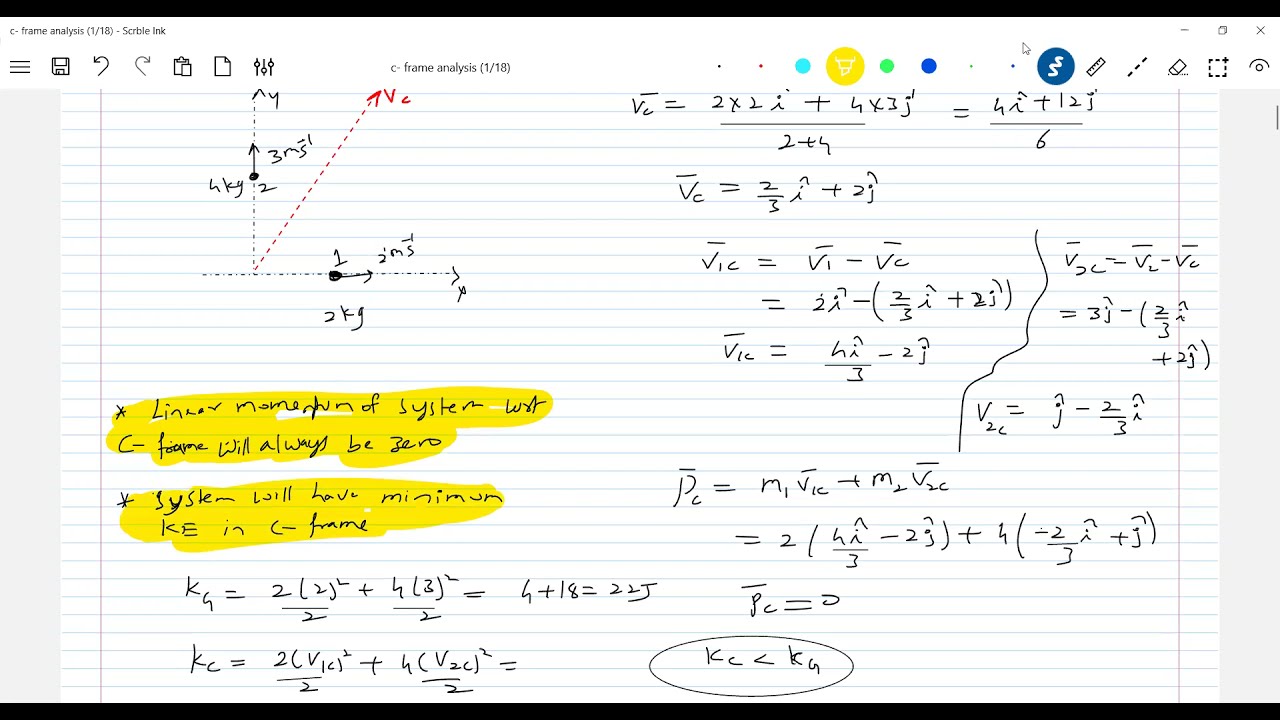 c- frame analysis (1/18) - Scrble Ink
c- frame analysis (1/18)
y
V_c
3ms⁻¹
4kg 2
1
2ms⁻¹
x
2kg
* Linear momentum of system wrt
C- frame will always be zero
* System will have minimum
KE in C- frame
K_G = 2(2)²/2 + 4(3)²/2 = 4+18 = 22J
K_C = 2(V_1C)²/2 + 4(V_2C)²/2 =
V̄_C = (2×2î + 4×3ĵ)/(2+4) = (4î+12ĵ)/6
V̄_C = 2/3 î + 2ĵ
V̄_1C = V̄_1 − V̄_C
= 2î − (2/3 î + 2ĵ)
V̄_1C = 4î/3 − 2ĵ
V̄_2C = V̄_2 − V̄_C
= 3ĵ − (2/3 î
+ 2ĵ)
V_2C = ĵ − 2/3 î
P̄_C = m₁V̄_1C + m₂V̄_2C
= 2(4î/3 − 2ĵ) + 4(−2/3 î + ĵ)
P̄_C = 0
K_C < K_G